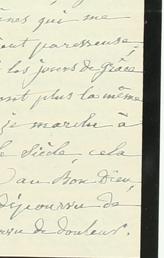 nes qui me
paresseuse,
les jours de grâce
ont plus la même
je marche à
le siècle, cela
au Bon Dieu,
dépourvu de
de douleur.